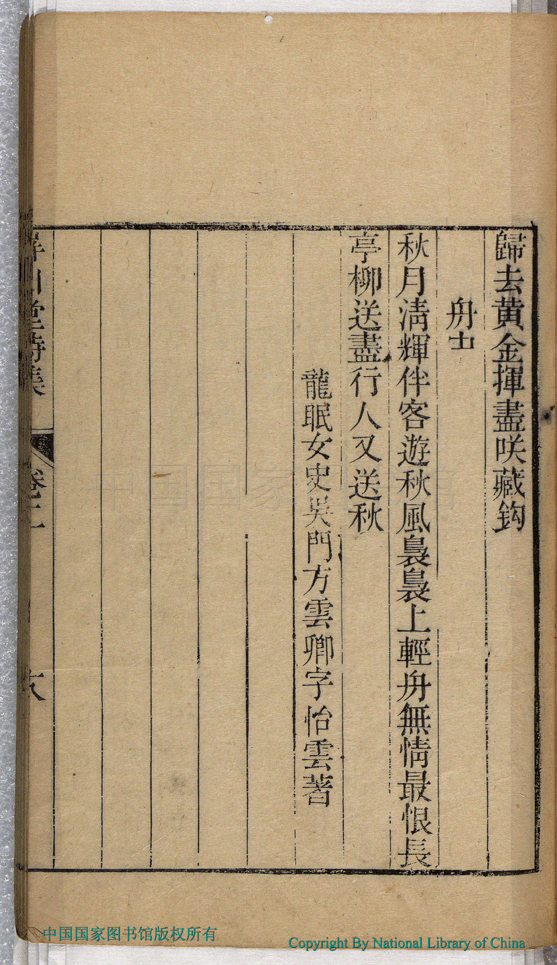 歸去黃金揮盡咲藏鈎
舟中
秋月淸輝伴客遊秋風裊裊上輕舟無情最恨長
亭柳送盡行人又送秋
龍眠女史吳門方雲卿字怡雲著
堂詩集
卷二
中国国家图书馆版权所有
Copyright By National Library of China